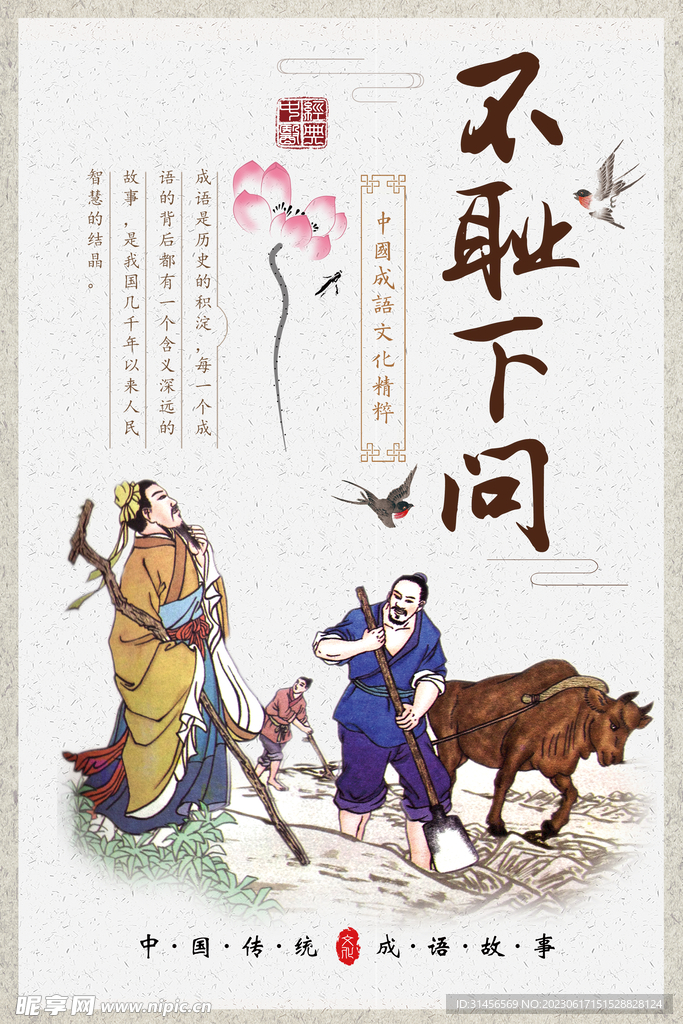 不耻下问
中國成語文化精粹
經典
中醫
成语是历史的积淀，每一个成
语的背后都有一个含义深远的
故事，是我国几千年以来人民
智慧的结晶。
中·国·传·统 文化 成·语·故·事
昵享网 www.nipic.cn
ID:31456569 NO:20230617151528828124